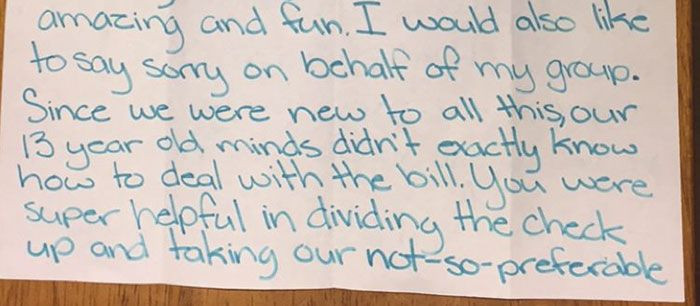 amazing and fun. I would also like
to say sorry on behalf of my group.
Since we were new to all this, our
13 year old minds didn't exactly know
how to deal with the bill. You were
super helpful in dividing the check
up and taking our not-so-preferable